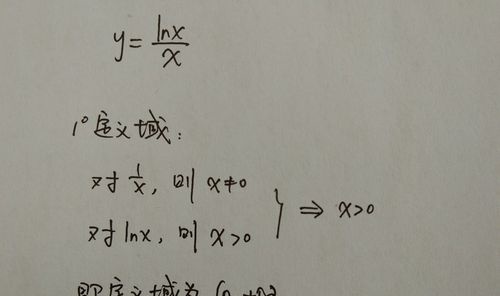 y = lnx/x
1° 定义域:
对 1/x, 则 x≠0
对 lnx, 则 x>0 } ⇒ x>0
即定义域为